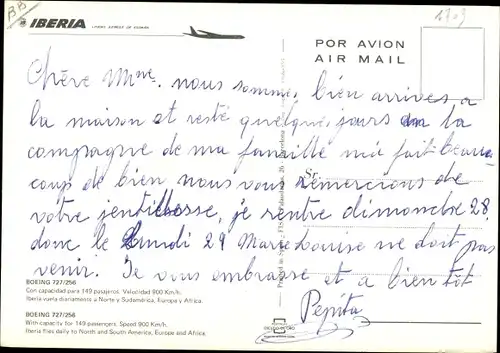 BB
IBERIA LINEAS AEREAS DE ESPAÑA
1709
POR AVION
AIR MAIL
Chère Mme. nous somme, bien arrives a
la maison et resté quelque, jours en la
compagne de ma famille m'a fait beau
coup de bien nous vous remercions de
Sr.
votre jentillesse, je rentre dimanche 28,
donc le Lundi 29 Marie Louise ne doit pas
venir. Je vous embrasse et a bien tôt
Pepita
BOEING 727/256
Con capacidad para 149 pasajeros. Velocidad 900 Km/h.
Iberia vuela diariamente a Norte y Sudamérica, Europa y Africa.
BOEING 727/256
With capacity for 149 passengers. Speed 900 Km/h.
Iberia flies daily to North and South America, Europe and Africa.